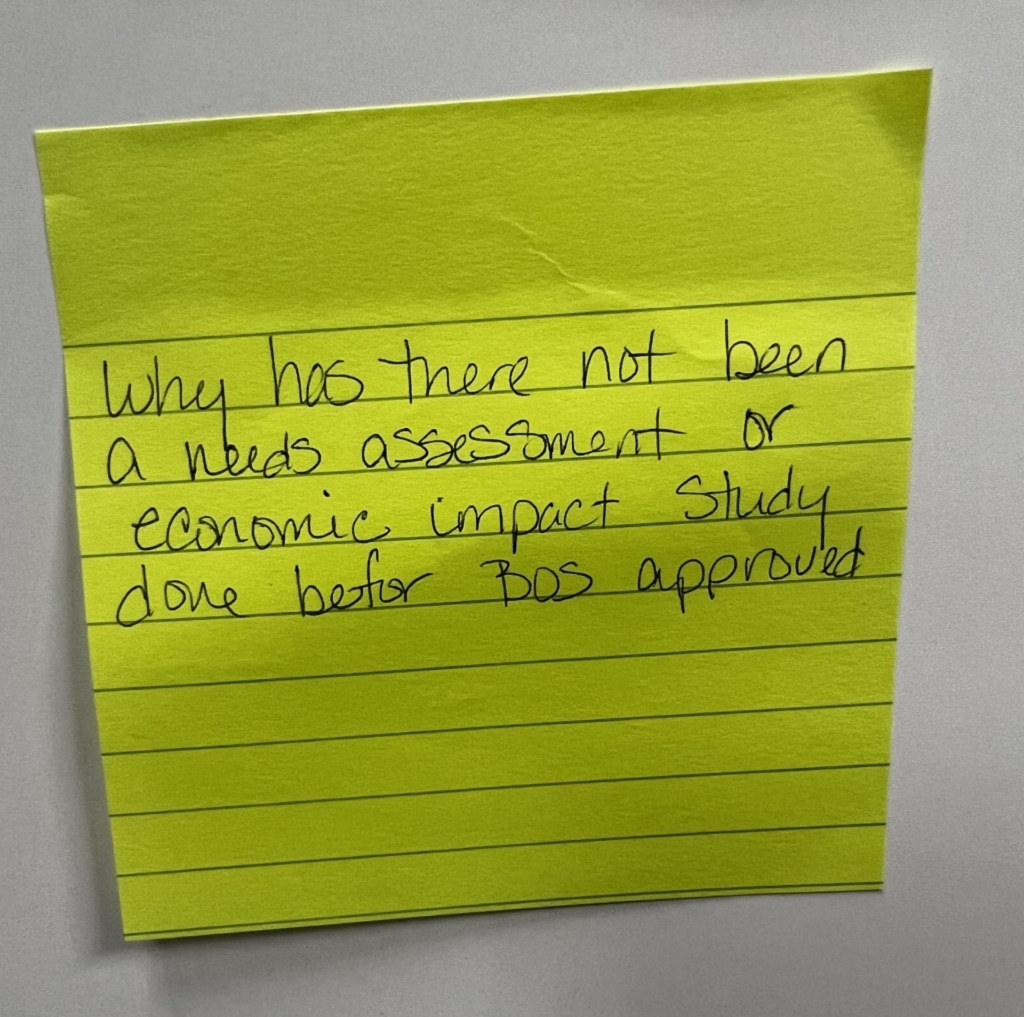 Why has there not been
a needs assessment or
economic impact Study
done befor BOS approved